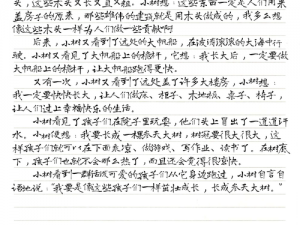 头，这些木头又长又直又粗。小树想：这些东西一定是人们用来
盖房子的原来，那些雄伟的建筑就是用木头做成的，我多么想
像这些木头一样为人们做一些贡献啊
后来，小树又看到了远处的大帆船，在波涛滚滚的大海中行
驶。小树又看见了船上的桅杆，它想：我长大后，一定要做大
帆船上的桅杆，让大帆船跑得更快。
又有一次，小树又看到远处盖了许多大楼房，小树想：
我一定要快快长大，让人们做床、柜子、木地板、桌子、椅子，
让人们过上幸福快乐的生活。
小树看见了孩子们在院子里玩耍，他们头上冒出了一道道汗
水。小树便想：我要长成一棵参天大树，树冠要很大很大，这
样孩子们就可以在下面乘凉、做游戏、写作业、读书了。在树底
下，孩子们也就不会那么热了，而且还会觉得很愉快。
小树看到一群活泼可爱的孩子们从它身边跑过，小树自言自
语地说：“我要是像这些孩子们一样茁壮成长，长成参天大树。”